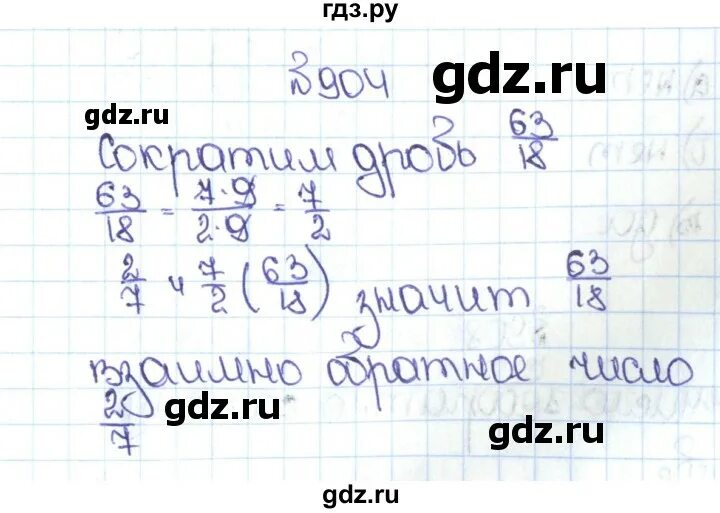 гдз.ру
№904
gdz.ru
gdz.ru
Сократим дробь 63/18
63/18 = 7·9/2·9 = 7/2
2/7 и 7/2 (63/18) значит 63/18
взаимно обратное число
2/7
gdz.ru
gdz.ru
gdz.ru